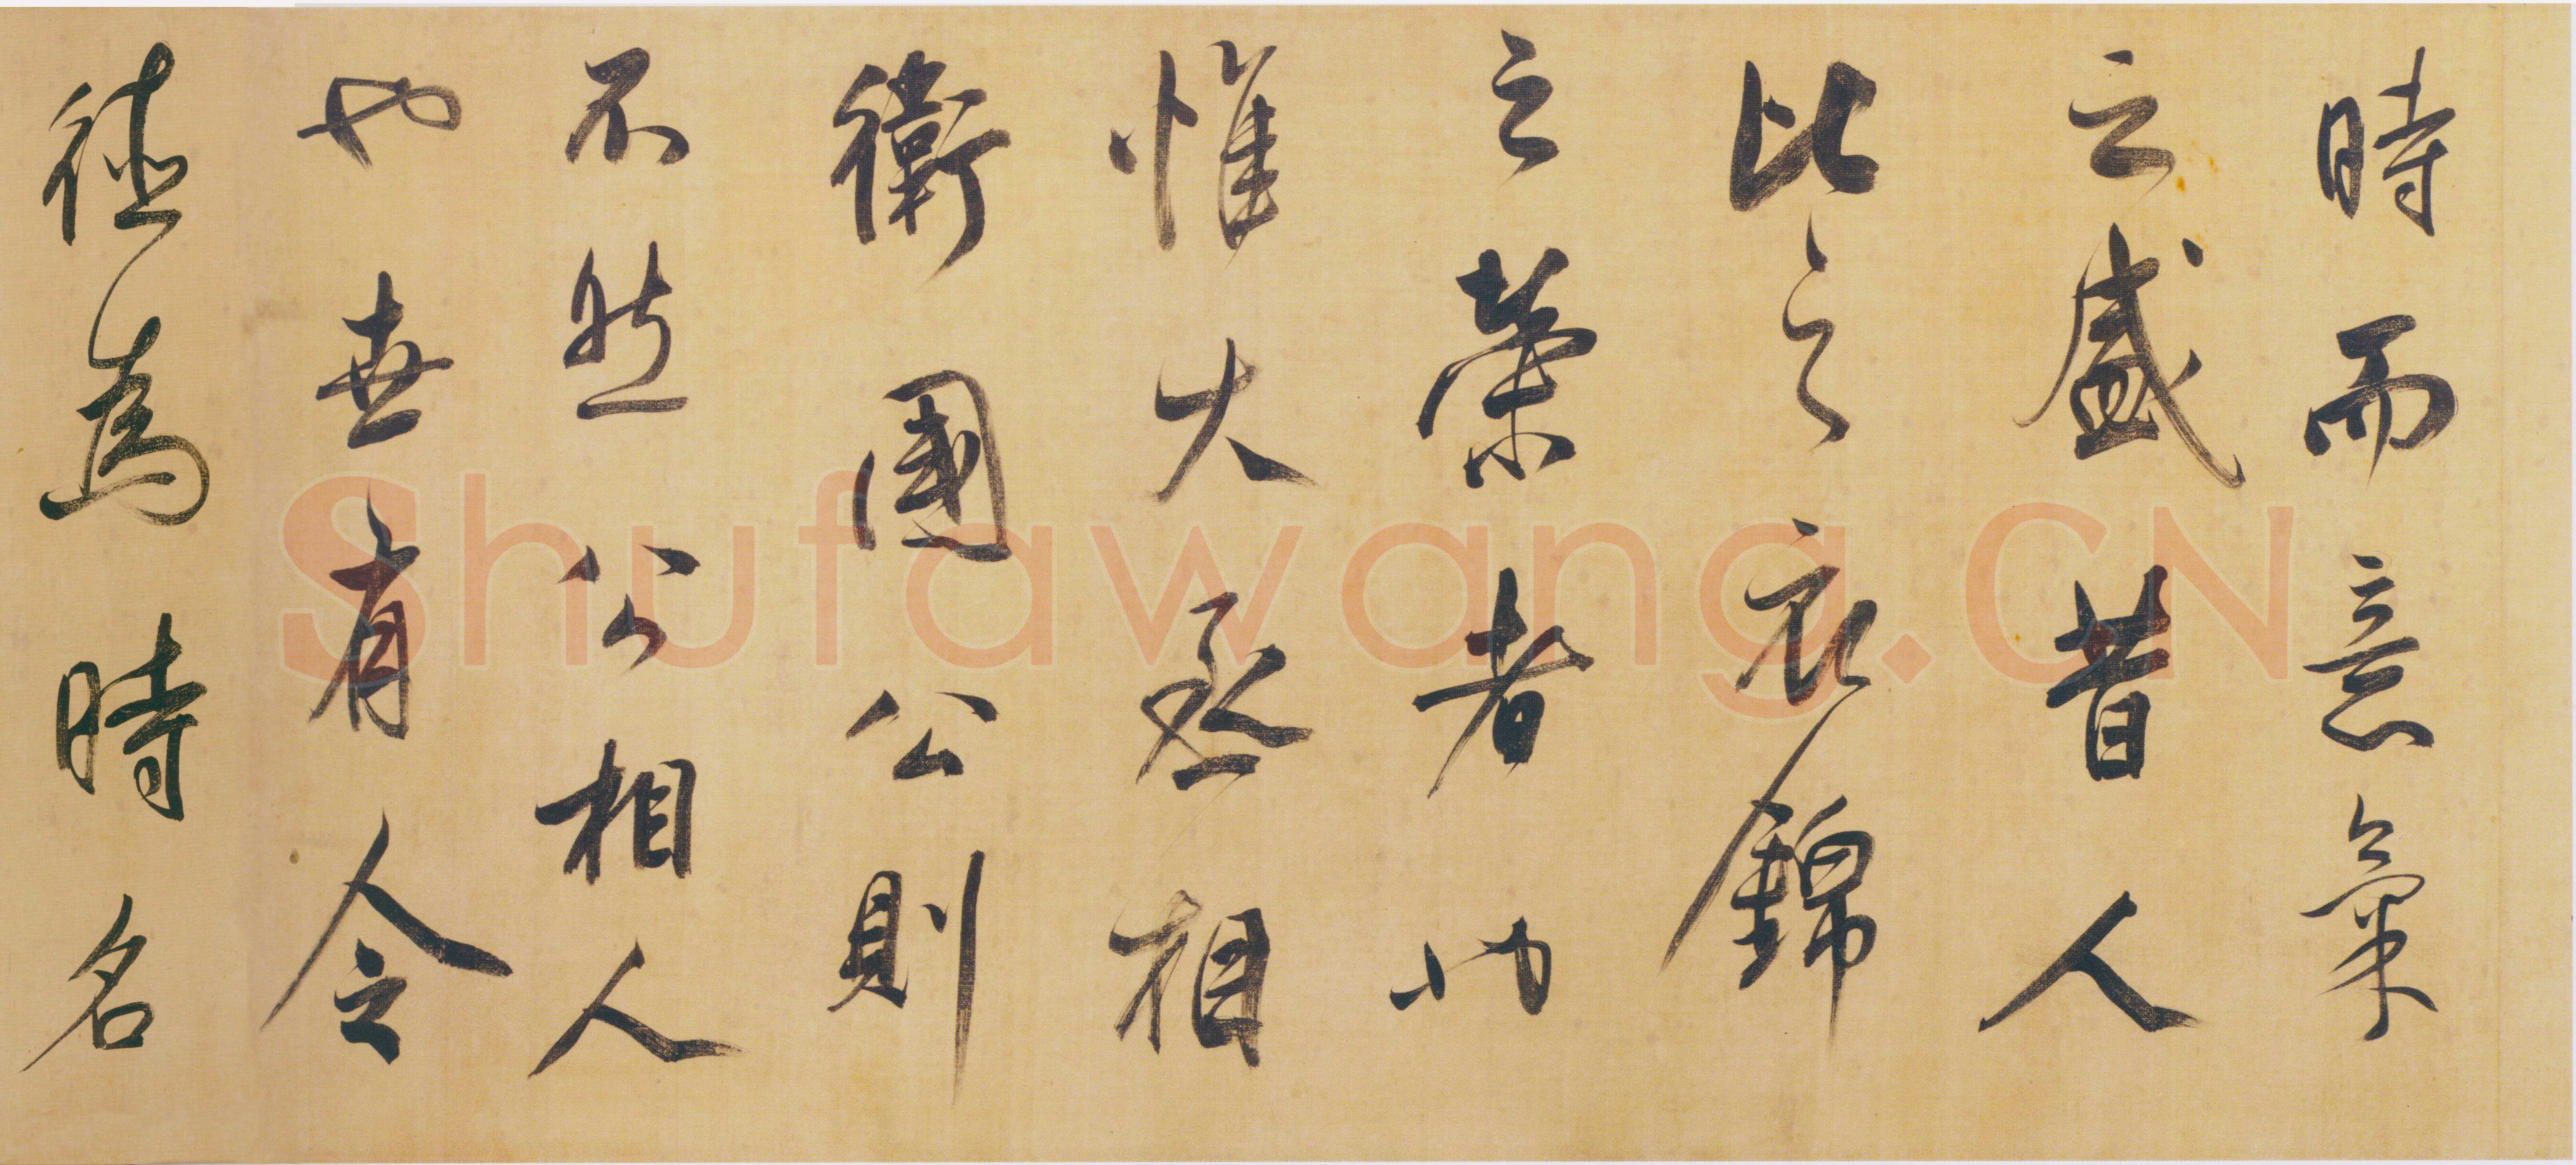 時而意氣
之盛昔人
比之衣錦
之榮者也
惟大丞相
衛國公則
不然公相人
也世有令
德為時名
Shufawang.CN